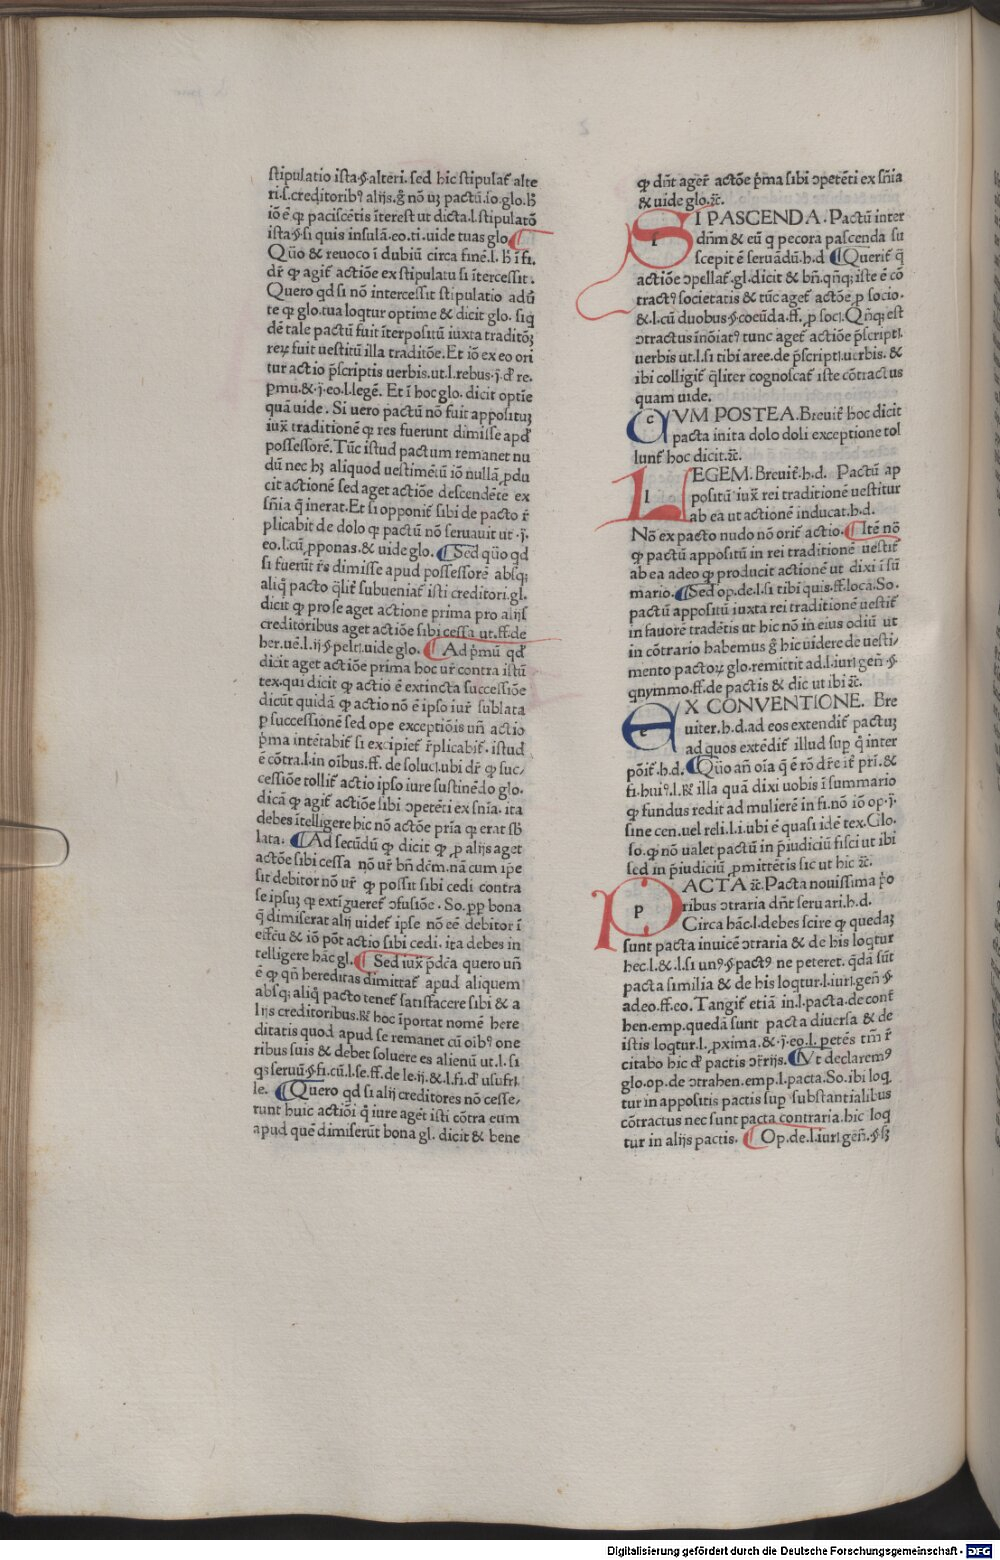 stipulatio ista.§.alteri. sed hic stipulat̃ alte
ri.s.creditoribꝰ alijs.g̃ nō uꝫ pactū.io.glo.h̃
iō ē ꝙ paciscētis īterest ut dicta.l.stipulatō
ista.§.si quis insulā.eo.ti.uide tuas glo. ¶
Qūo & reuoco ī dubiū circa finē.l. h̃ ī fi.
dr̃ ꝙ agit̃ actiōe ex stipulatu si ītercessit.
Quero qd si nō intercessit stipulatio adū
te ꝙ glo.tua loqtur optime & dicit glo. siq̄
dē tale pactū fuit īterpositū iuxta traditōꝫ
reꝝ fuit uestitū illa traditōe. Et iō ex eo ori
tur actio p̄scriptis uerbis.ut.l.rebus.j.d̃ re.
ꝑmu.&.j.eo.l.legē. Et ī hoc glo. dicit optīe
quā uide. Si uero pactū nō fuit appositūꝫ
iux̃ traditionē ꝙ res fuerunt dimisse apd̃
possessorē. Tūc istud pactum remanet nu
dū nec hꝫ aliquod uestimētū iō nullā ꝓdu
cit actionē sed aget actiōe descendēte ex
sn̄ia q̄ inerat. Et si opponit̃ sibi de pacto r̃
plicabit de dolo ꝙ pactū nō seruauit ut .j.
eo.l.cū ꝓponas.& uide glo. ¶ Sed qūo qd
si fuerūt r̃s dimisse apud possessorē absqꝫ
aliq̄ pacto q̄lit̃ subueniat̃ isti creditori.gl.
dicit ꝙ pro se aget actione prima pro alijs
creditoribus aget actiōe sibi cessa ut.ff.de
her.uē.l.ij.§.pelr.uide glo. ¶ Ad p̄mū qd̃
dicit aget actiōe prima hoc ur̃ contra istū
tex.qui dicit ꝙ actio ē extincta successiōe
dicūt quidā ꝙ actio nō ē ipso iur̃ sublata
ꝑ successionē sed ope exceptiōis un̄ actio
p̄ma intētabit̃ si excipiet̃ r̃plicabit̃. istud
ē cōtra.l.in oībus.ff. de soluc.ubi dr̃ ꝙ suc/
cessiōe tollit̃ actio ipso iure sustinēdo glo.
dicā ꝙ agit̃ actiōe sibi ꝯpetēti ex sn̄ia. ita
debes ītelligere hic nō actōe pr̄ia ꝙ erat sb̃
lata. ¶ Ad secūdū ꝙ dicit ꝙ ꝓ alijs aget
actōe sibi cessa nō ur̃ bn̄ dc̄m.nā cum ipe
sit debitor nō ur̃ ꝙ possit sibi cedi contra
se ipsuꝫ ꝙ extīgueret̃ ꝯfusiōe. So.ꝓp bona
q̄ dimiserat alij uidet̃ ipse nō eē debitor ī
effc̄u & iō pōt actio sibi cedi. ita debes in
telligere hāc gl. ¶ Sed iux̃ p̄dc̄a quero un̄
ē ꝙ qn̄ hereditas dimittat̃ apud aliquem
absqꝫ aliq̄ pacto tenet̃ satisfacere sibi & a
lijs creditoribus. R̃ hoc īportat nomē here
ditatis quod apud se remanet cū oībꝰ one
ribus suis & debet soluere es alienū ut.l.si
qs seruū.§.fi.cū.l.se.ff.de le.ij.&.l.fi.d̃ usufr.
le. ¶ Quero qd si alij creditores nō cesse/
runt huic actiōi q̄ iure aget isti cōtra eum
apud quē dimiserūt bona gl. dicit & bene
ꝙ dn̄t ager̃ actōe p̄ma sibi ꝯpetēti ex sn̄ia
& uide glo. ⁊c̃.
SI PASCENDA. Pactū inter
dn̄m & eū q̄ pecora pascenda su
scepit ē seruādū.h.d ¶ Querit̃ q̄
actiōe ꝯpellat̃.gl.dicit & bn̄.qn̄qꝫ iste ē cō
tractꝰ societatis & tūc aget̃ actōe ꝓ socio.
&.l.cū duobus.§.coeūda.ff. ꝓ soc. Qn̄qꝫ est
ꝯtractus inōiatꝰ tunc aget̃ actiōe p̄script.
uerbis ut.l.si tibi aree.de p̄script.uerbis. &
ibi colligit̃ q̄liter cognoscat̃ iste cōtractus
quam uide.
CVM POSTEA. Breuit̃ hoc dicit
pacta inita dolo doli exceptione tol
lunt̃ hoc dicit.⁊c̃.
LEGEM. Breuit̃.h.d. Pactū ap
positū iux̃ rei traditionē uestitur
ab ea ut actionē inducat.h.d.
Nō ex pacto nudo nō orit̃ actio. ¶ Itē nō
ꝙ pactū appositū in rei traditionē uestit̃
ab ea adeo ꝙ producit actionē ut dixi ī sū
mario. ¶ Sed op.de.l.si tibi quis.ff.loca. So.
pactū appositū iuxta rei traditionē uestit̃
in fauorē tradētis ut hic nō in eius odiū ut
in cōtrario habemus g̃ hic uidere de uesti/
mento pactoꝝ glo.remittit ad.l.iur.gen̄.§
qnymmo.ff.de pactis & dic ut ibi ⁊c̃.
EX CONVENTIONE. Bre
uiter.h.d.ad eos extendit̃ pactuꝫ
ad quos extēdit̃ illud sup q̄ inter
pōit̃.h.d. ¶ Qūo an̄ oīa q̄ ē rō dr̄e it̃ pr̄ī.&
fi.huiꝰ.l. R̃ illa quā dixi uobis ī summario
ꝙ fundus redit ad mulierē in fi.nō iō op.j.
sine cen.uel reli.l.i.ubi ē quasi idē tex. Glo.
so.ꝙ nō ualet pactū in p̄iudiciū fisci ut ibi
sed in p̄iudiciū ꝓmittētis sic ut hic ⁊c̃.
PACTA ⁊c̃. Pacta nouissima p̄o
ribus ꝯtraria dn̄t seruari.h.d.
Circa hāc.l.debes scire ꝙ quedaꝫ
sunt pacta inuicē ꝯtraria & de his loqtur
hec.l.&.l.si unꝰ.§.pactꝰ ne peteret. q̄dā sūt
pacta similia & de his loqtur.l.iur.gen̄.§
adeo.ff.eo. Tangit̃ etiā in.l.pacta.de cont̃
hen.emp.quedā sunt pacta diuersa & de
istis loqtur.l.ꝓxima.&.j.eo.l.petēs tm̄ r̃
citabo hic d̃ pactis ꝯr̄rijs. ¶ Vt declaremꝰ
glo.op.de ꝯtrahen.emp.l.pacta.So.ibi loq̄
tur in appositis pactis sup substantialibus
cōtractus nec sunt pacta contraria.hic loq
tur in alijs pactis. ¶ Op.de.l.iur.gen̄.§.sꝫ
Digitalisierung gefördert durch die Deutsche Forschungsgemeinschaft - DFG